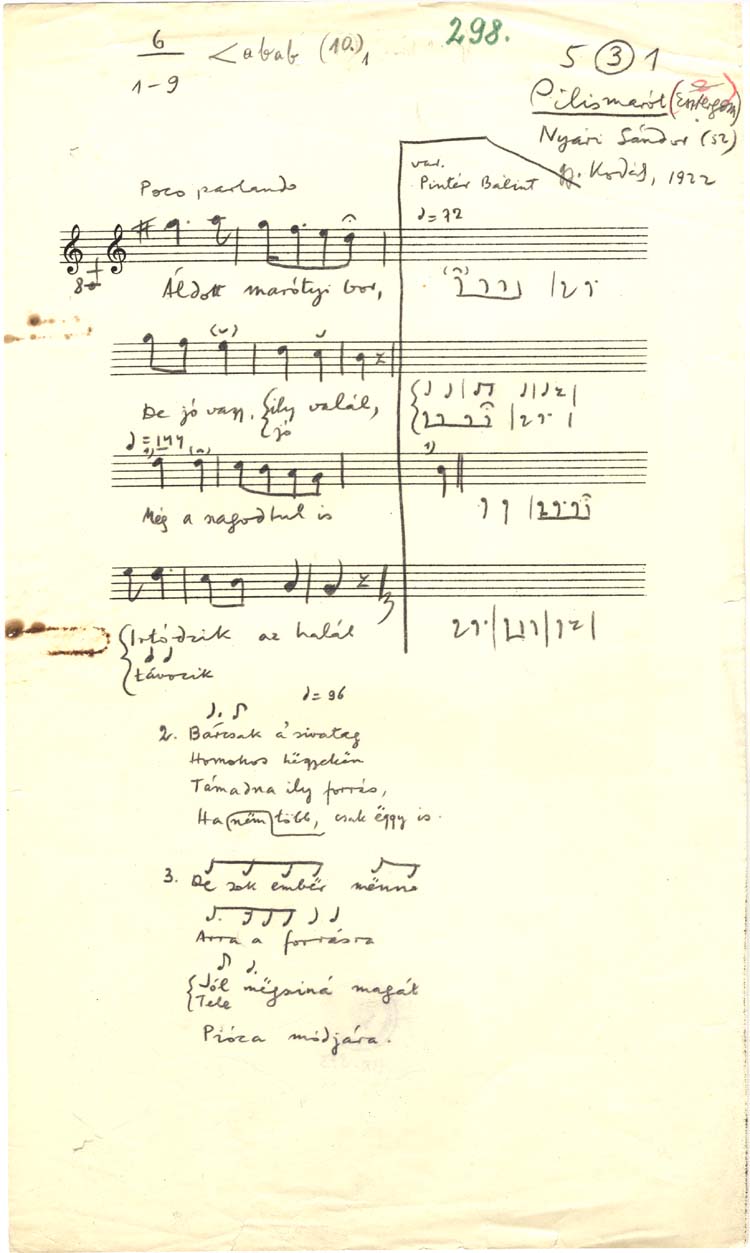 298.
6
1-9
abab (10.)1
5 ③ 1
Pilismarót (Esztergom)
Nyári Sándor (52)
gy. Kodály, 1922
var.
Pintér Bálint
Poco parlando
♩=72
8
Áldott marótyi bor,
De jó vagy, {ily valál,
jó
♩=144
1)
1)
Még a nagodtul is
{Irtódzik az halál
távozik
♩=96
2. Bárcsak a sivatag
Homokos hëgyekën
Támadna ily forrás,
Ha nëm több, csak ëggy is.
3. De sok embër mënne
Arra a forrásra
{Jól mëgsziná magát
Tele
Pióca módjára.